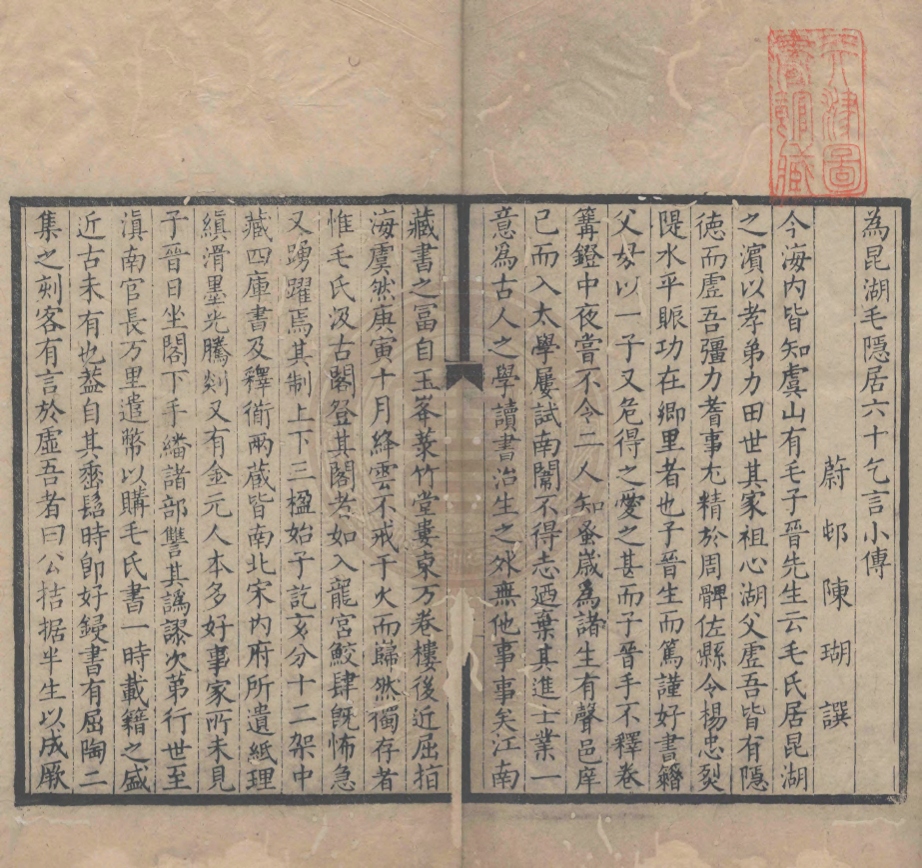 為昆湖毛隠居六十乞言小傳
蔚邨陳瑚譔
今海内皆知虞山有毛子晉先生云毛氏居昆湖
之濵以孝弟力田世其家祖心湖父虗吾皆有隠
徳而虗吾彊力耆事尢精於周髀佐縣令楊忠烈
隄水平賑功在鄉里者也子晉生而篤謹好書籍
父母以一子又危得之愛之甚而子晉手不釋卷
篝鐙中夜嘗不令二人知蚤歲為諸生有聲邑庠
已而入太學屢試南闈不得志廼棄其進士業一
意為古人之學讀書治生之外無他事事矣江南
藏書之富自玉峯菉竹堂婁東万卷樓後近屈指
海虞然庚寅十月絳雲不戒于火而巋然獨存者
惟毛氏汲古閣登其閣者如入龍宮鮫肆旣怖急
又踴躍焉其制上下三楹始子訖亥分十二架中
藏四庫書及釋衜兩藏皆南北宋内府所遺紙理
縝滑墨光騰剡又有金元人本多好事家所未見
子晉日坐閣下手繙諸部讐其譌謬次第行世至
滇南官長万里遣幣以購毛氏書一時載籍之盛
近古未有也葢自其垂髫時卽好鋟書有屈陶二
集之刻客有言於虛吾者曰公拮据半生以成厥
天津圖書館藏